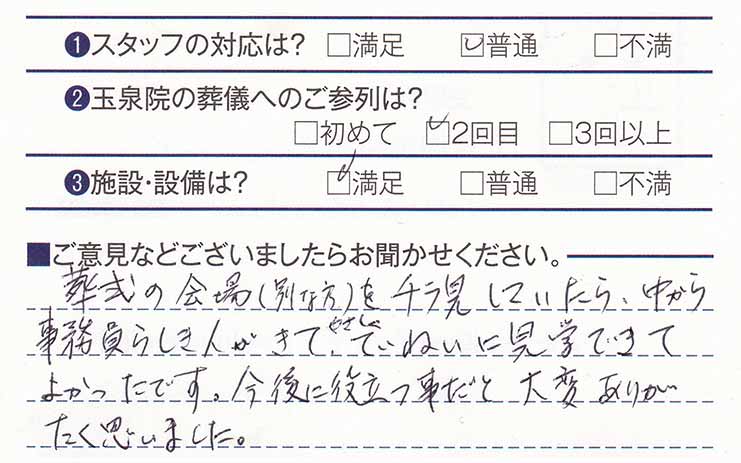 ❶スタッフの対応は? □満足 ☑普通 □不満
❷玉泉院の葬儀へのご参列は?
□初めて ☑2回目 □3回以上
❸施設・設備は? ☑満足 □普通 □不満
■ご意見などございましたらお聞かせください。
葬式の会場(別な方)をチラ見していたら、中から
事務員らしき人がきて、やさしくていねいに見学できて
よかったです。今後に役立つ事だと大変ありが
たく思いました。